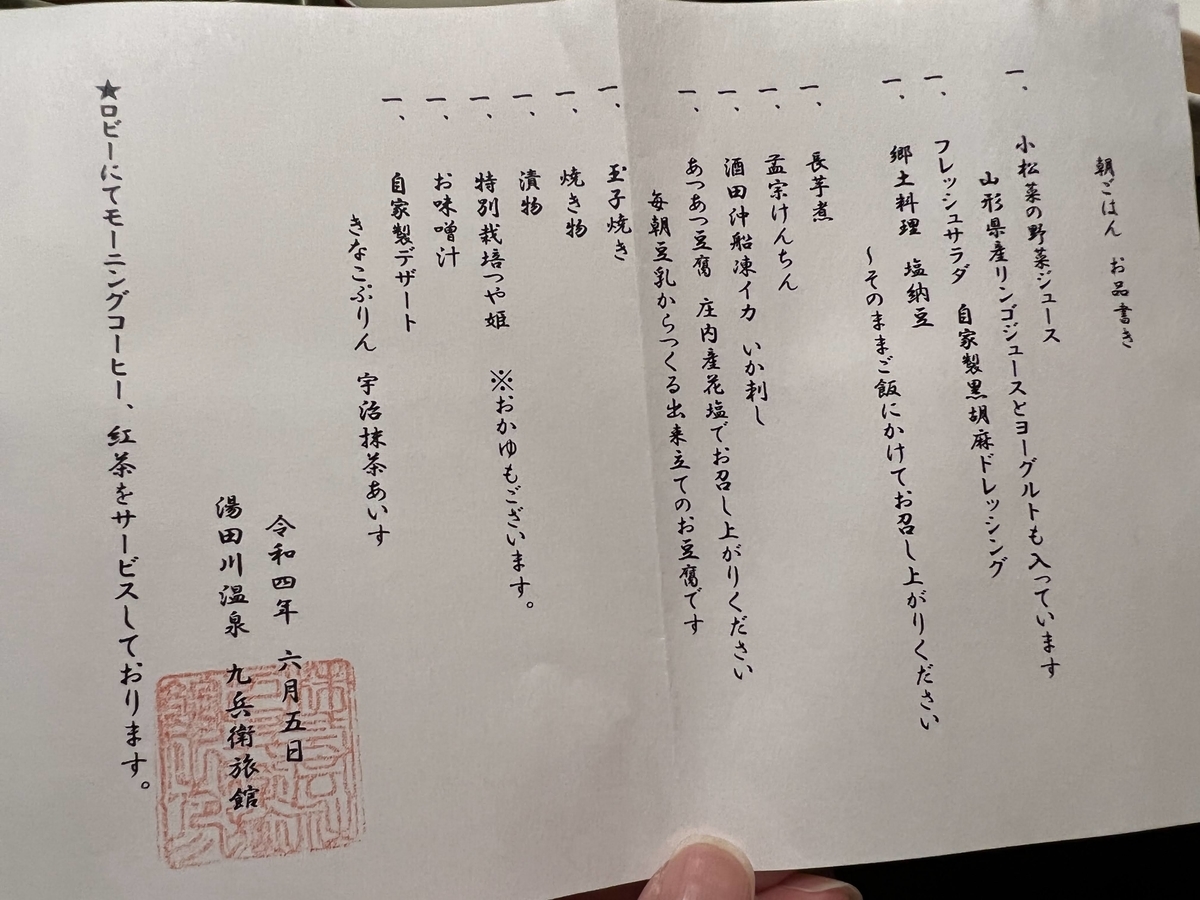 朝ごはん　お品書き
一、小松菜の野菜ジュース
山形県産リンゴジュースとヨーグルトも入っています
一、フレッシュサラダ　自家製黒胡麻ドレッシング
一、郷土料理　塩納豆
～そのままご飯にかけてお召し上がりください
一、長芋煮
一、孟宗けんちん
一、酒田沖船凍イカ　いか刺し
一、あつあつ豆腐　庄内産花塩でお召し上がりください
毎朝豆乳からつくる出来立てのお豆腐です
一、玉子焼き
一、焼き物
一、漬物
一、特別栽培つや姫　※おかゆもございます。
一、お味噌汁
一、自家製デザート
きなこぷりん　宇治抹茶あいす
令和四年　六月五日
湯田川温泉　九兵衛旅館
★ロビーにてモーニングコーヒー、紅茶をサービスしております。